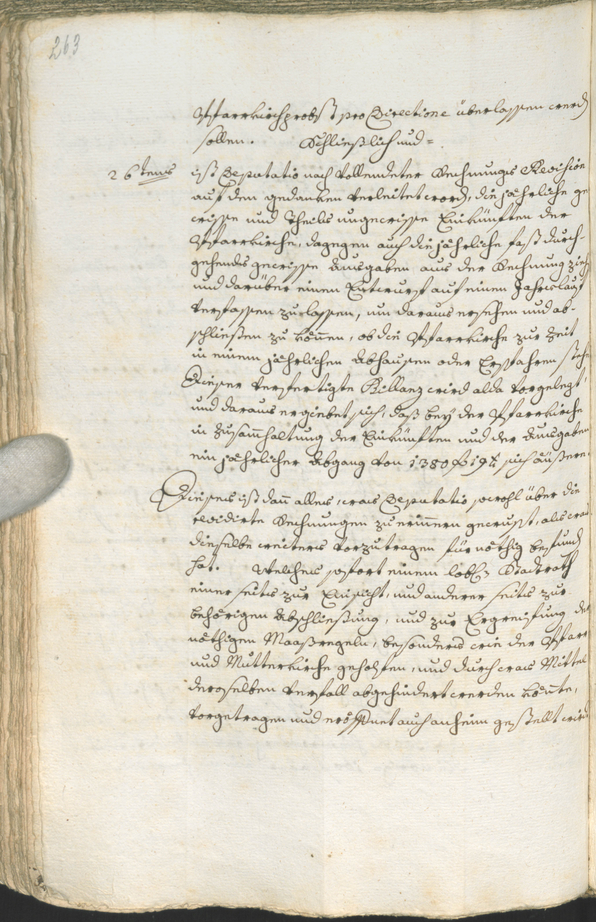 263
Pfarrkirchprobst pro Directione überlassen werd
sollen. Schließlich und =
26tens ist Deputatio nach vollendeter Rechnungs Revision
auf dem gedanken verleitet word, die jährliche ge
wisse und theils ungewisse Einkünften der
Pfarrkirche, dagegen auch die jährliche fast durch
gehends gewisse Ausgaben aus der Rechnung zieh
und darüber einen Entwurf auf einem Jahrslauf
verfassen zu lassen, um daraus ersehen und ab-
schließen zu können, ob die Pfarrkirche zur Zeit
in einem jährlichen Abhausen oder Ersparen stehe
Dieser verfertigte Billanz wird alda vorgelegt,
und daraus ergiebet sich, daß bey der Pfarrkirche
in Zusammhaltung der Einkünften und der Ausgaben
ein jährlicher Abgang von 1380 f 19 x sich äußere.
Dieses ist dann alles, was Deputatio sowohl über die
revidirte Rechnungen zu erinnern gewußt, als was
dieselbe weiters vorzutragen für nöthig befund
hat. Welches sofort einem löbl. Stadtrath
einer seits zur Einsicht, und anderer seits zur
behörigen Abschließung, und zur Ergreifung der
nöthigen Maaßregeln, besonders wie der Pfarr
und Mutterkirche geholfen, und durch was Mittel
deroselben Verfall abgehindert werden könnte,
vorgetragen und eröffnet auch anheim gestellt wird